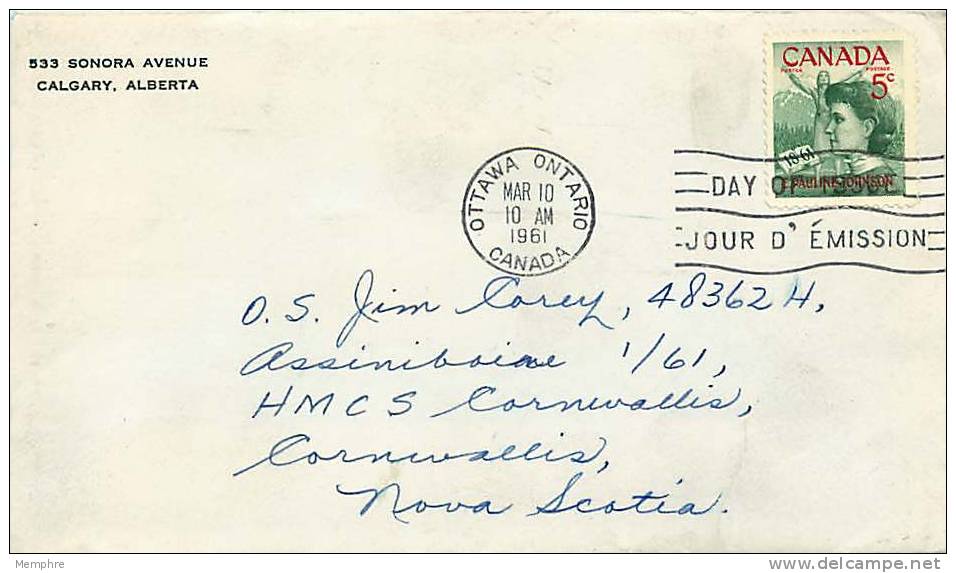 533 SONORA AVENUE
CALGARY, ALBERTA
CANADA
POSTES POSTAGE
5c
1861
E. PAULINE JOHNSON
OTTAWA ONTARIO
MAR 10
10 AM
1961
CANADA
DAY OF ISSUE
JOUR D' ÉMISSION
O.S. Jim Corey, 48362 H,
Assiniboine 1/61,
HMCS Cornwallis,
Cornwallis,
Nova Scotia.
Memphre
delcampe.net